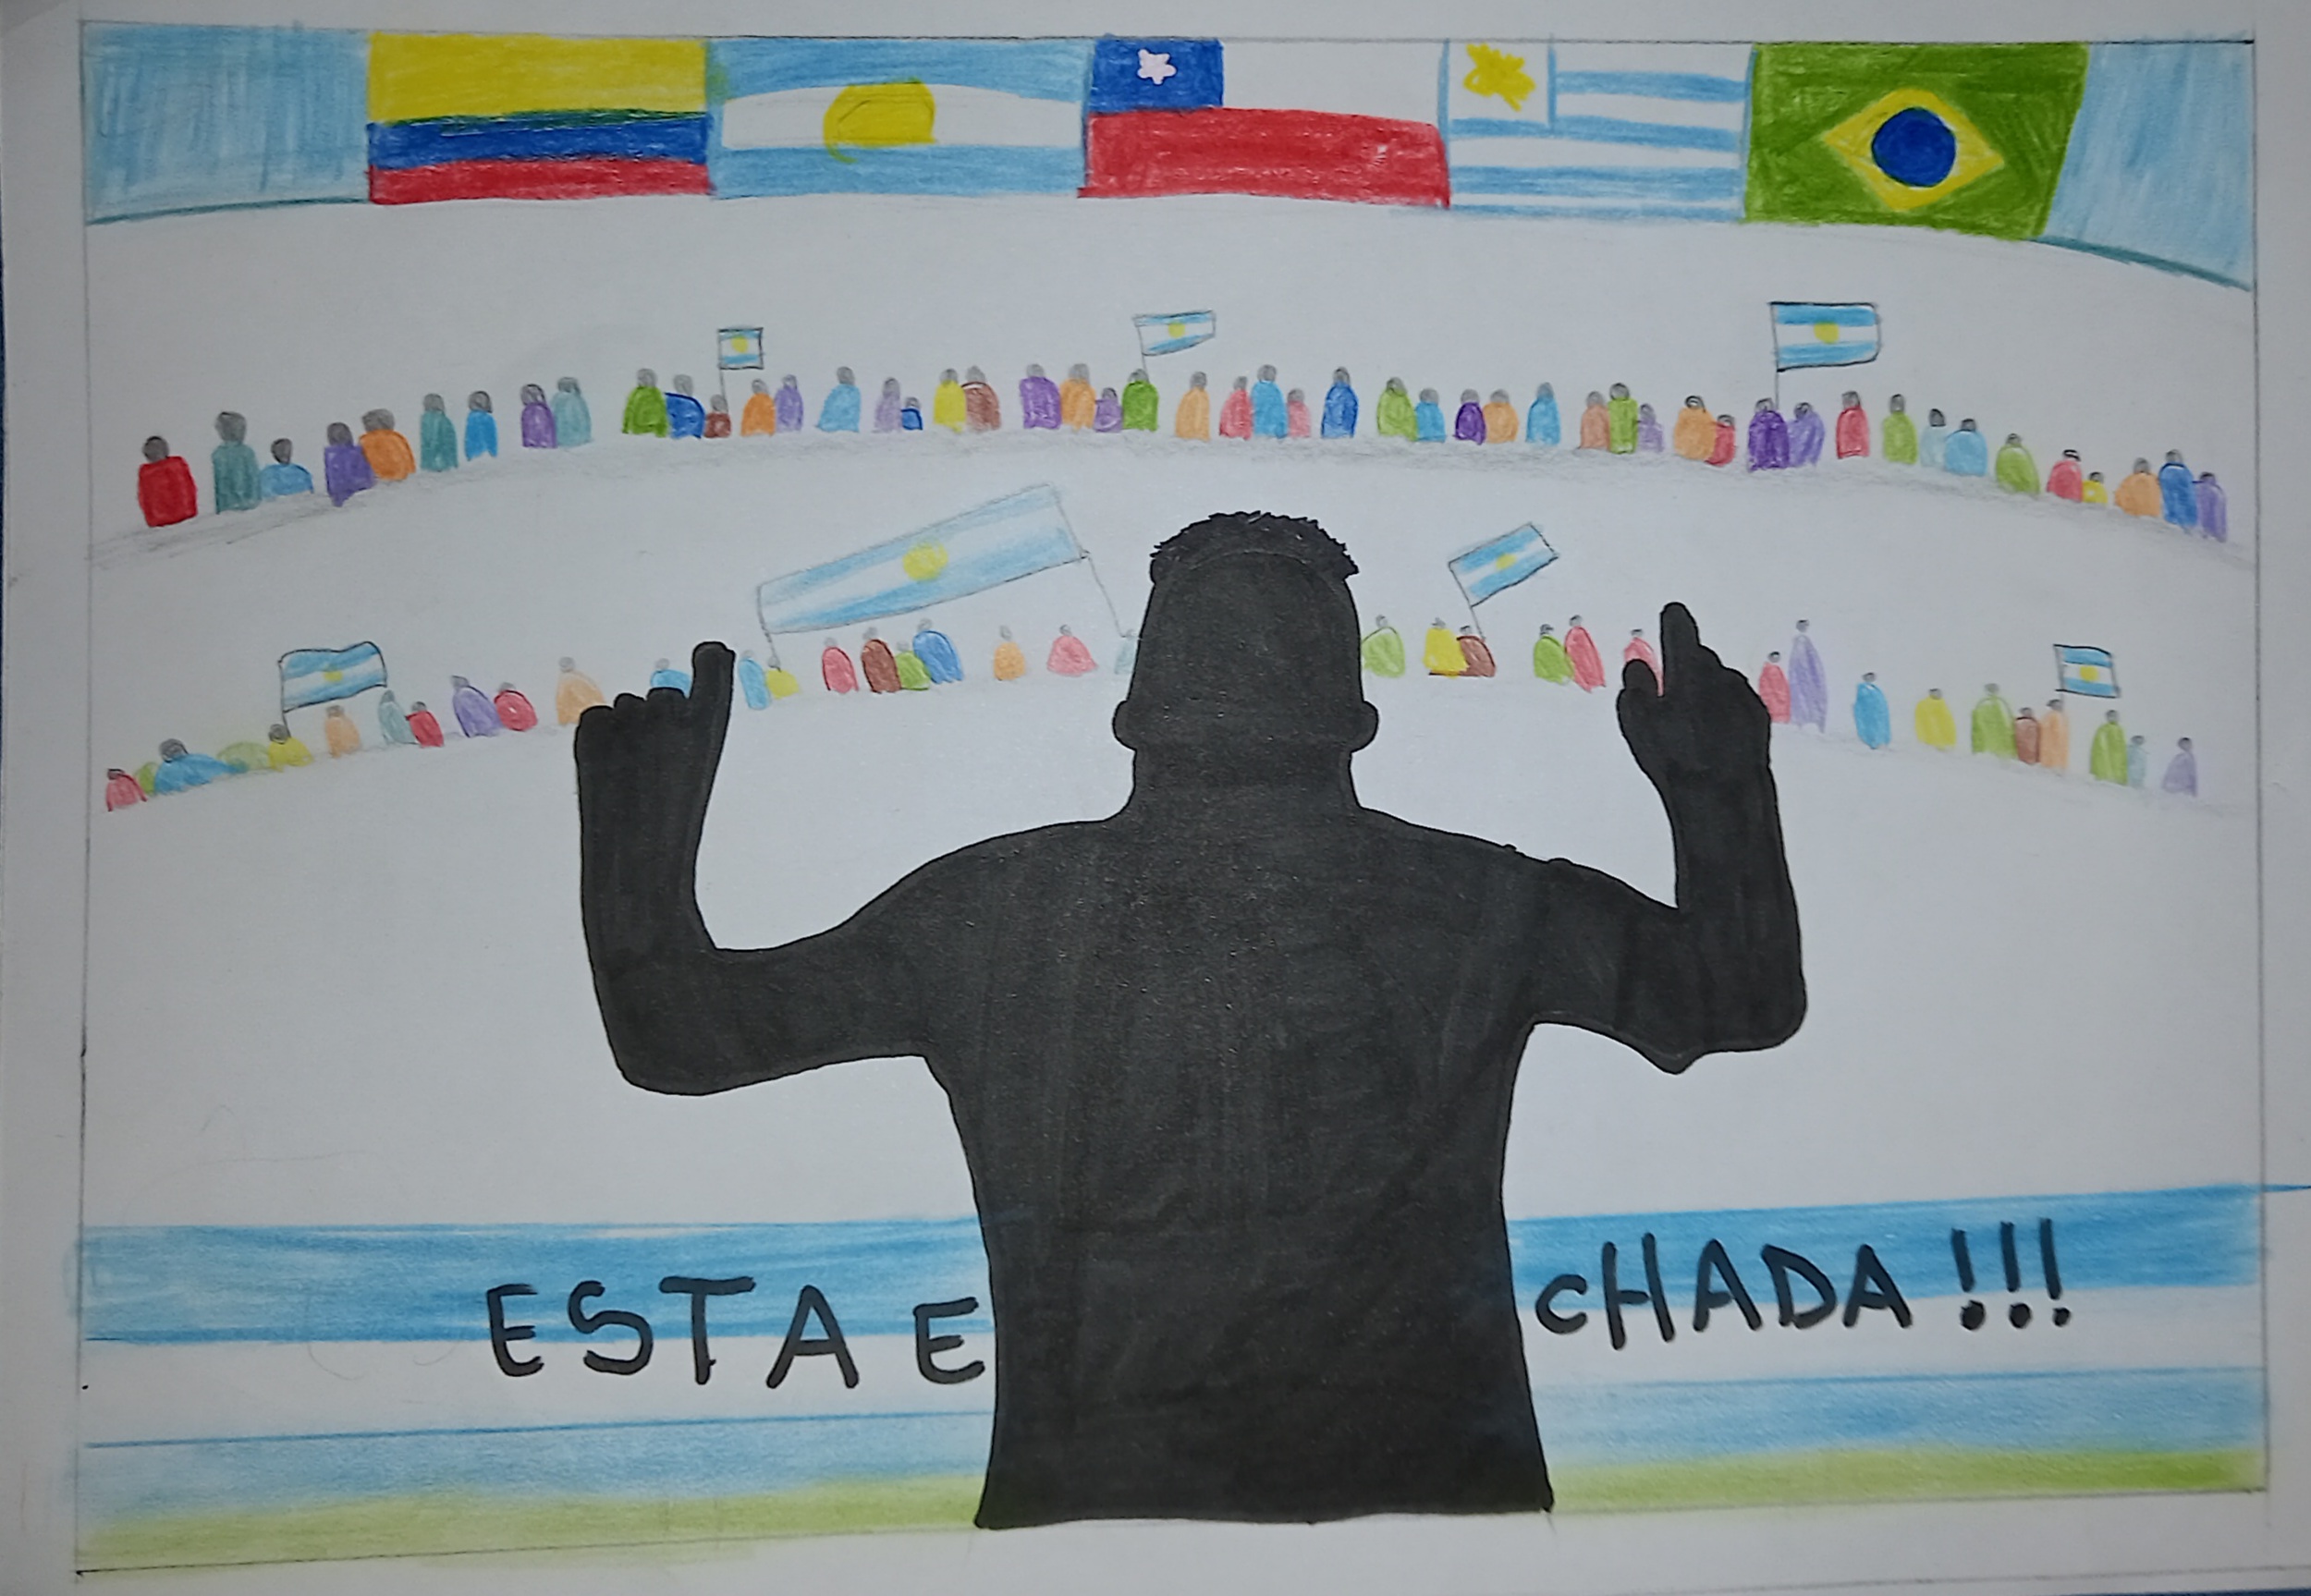 ESTA E CHADA!!!